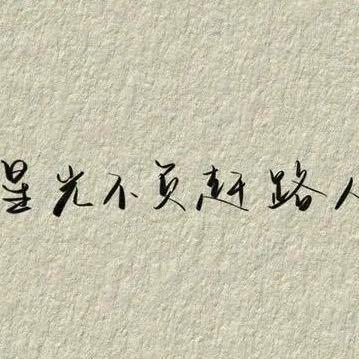 星光不负赶路人